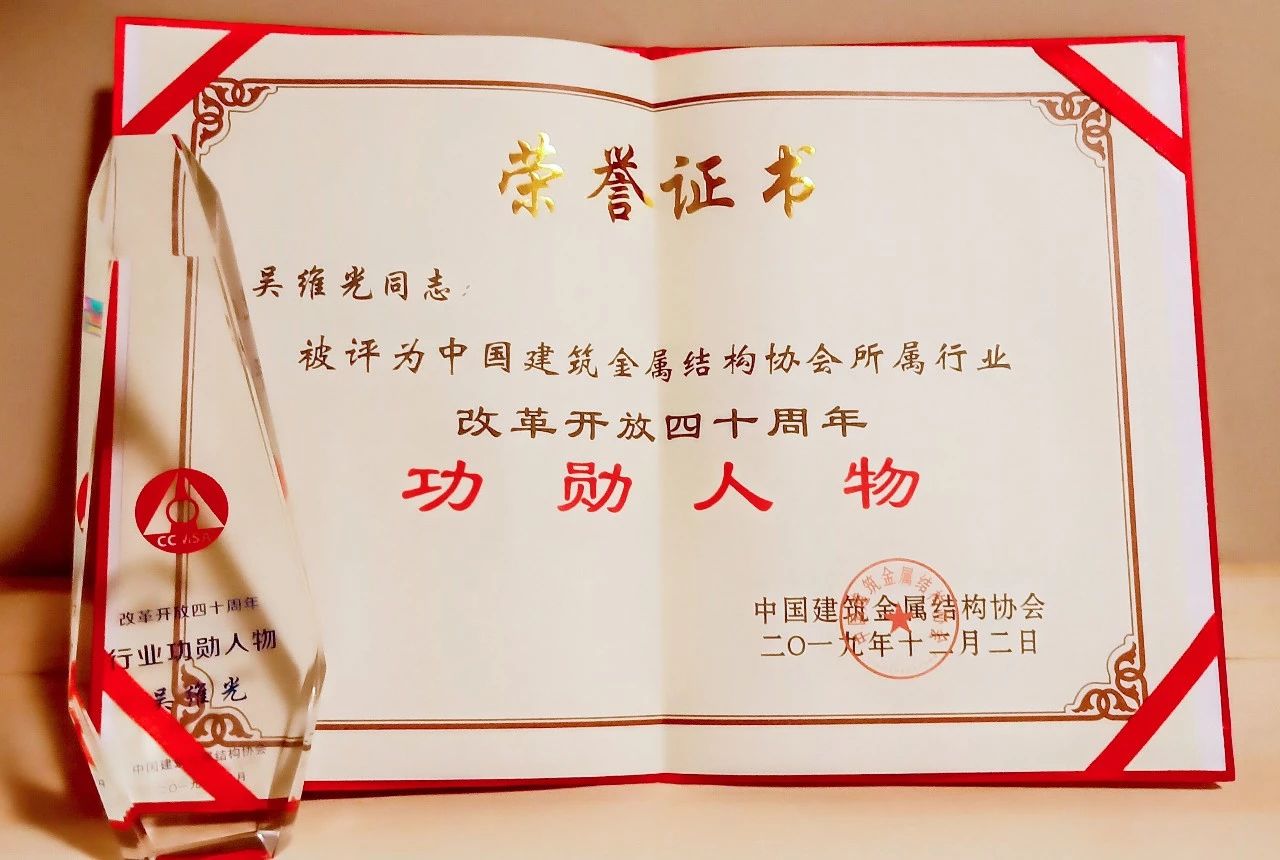 荣誉证书
吴维光同志:
被评为中国建筑金属结构协会所属行业
改革开放四十周年
功勋人物
中国建筑金属结构协会
二〇一九年十二月二日
CCMSA
改革开放四十周年
行业功勋人物
吴维光
中国建筑金属结构协会